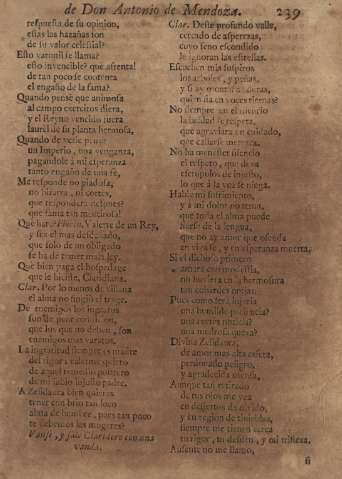 de Don Antonio de Mendoza. 239
respuesta de su opinion,
estas las hazañas son
de su valor celestial?
Esto varonil se llama?
esto invencible? que afrenta!
de tan poco se contenta
el engaño de la fama?
Quando pensè que animosa
al campo exercitos diera,
y el Reyno vencido fuera
laurel de su planta hermosa,
Quando de verle
un Imperio, una venganza,
pagandole à mi esperanza
tanto engaño de una fè,
Me responde no piadosa,
ni bizarra, ni cortès,
que responderà despues?
que fama tan mentirosa!
Que harè valerte de un Rey,
y sea el mas descuidado,
que solo de un obligado
se ha de temer mala ley.
Que bien paga el hospedage
que le hiciste, Claridiana.
Clar. Por lo menos de villana
el alma no fingiò el trage.
De enemigos los ingratos
son de peor condicion,
que los que no deben, son
enemigos mas baratos.
La ingratitud siempre es madre
del rigor; valiente sujeto
de aquel temeroso
de mi sabio injusto padre.
A Zelidaura bien quieres
tener con brio tan loco
alma de hombre, pues tan poco
te debemos las mugeres?
Vanse, y sale Claridoro con una
vanda.
Clar. Deste profundo valle,
cercado de asperezas,
cuyo seno escondido
le ignoran las estrellas.
Escuchen mis suspiros
los arboles, y peñas,
y si ay
quien oìa en voces tiernas?
No siempre en el silencio
la lealtad se respeta,
que agraviara un cuidado,
que callarse merezca.
No ha menester silencio
el respeto, que dexa
escrupulos de insulto,
lo que à la voz se niega.
Hable mi sufrimiento,
y à mi dolor no tema,
que toda el alma puede
fiarse de la lengua,
que no ay amor que ofenda
en vivas fe, y en esperanza muerta.
Si el disculpa primero
amara
no huviera en la hermosura
tan cobardes ofensas.
Pues como serà injuria
una humilde paciencia?
una cortès noticia?
una medrosa quexa?
Divina Zelidaura,
de amor mas alta esfera,
perdonado peligro,
y agradecida ofensa,
Aunque tan retirado
de tus ojos me vea
en desiertos de olvido,
y en region de tinieblas,
siempre me tienen cerca
tu rigor, tu desdèn, y mi tristeza,
Ausente no me llamo,
fi